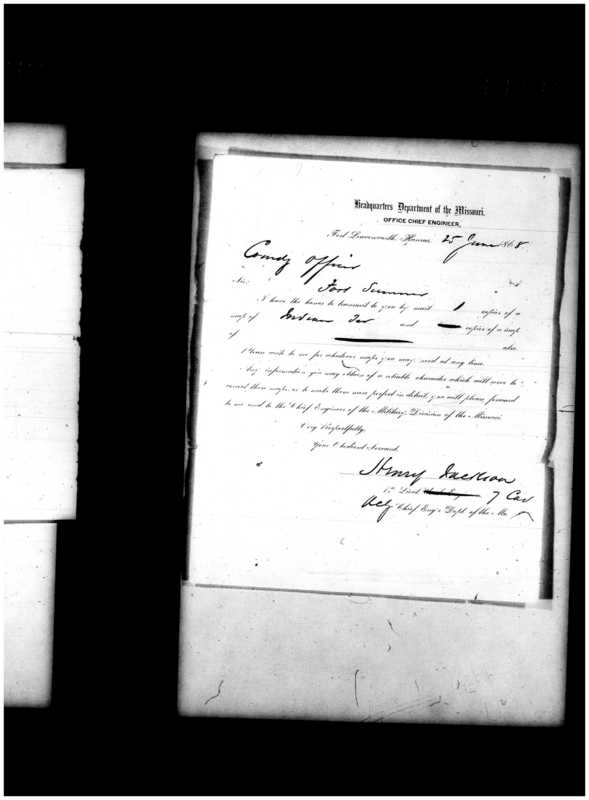 Headquarters Department of the Missouri,
OFFICE CHIEF ENGINEER,
Fort Leavenworth, Kansas, 25 June 1868.
Comdg Officer
Fort Sumner
Sir:
I have the honor to transmit to you by mail 1 copies of a
map of Indian Ter and copies of a map
of also
Please write to me for whatever maps you may need at any time.
Any information you may obtain of a reliable character which will serve to
correct these maps, or to make them more perfect in detail you will please forward
to me and to the Chief Engineer of the Military Division of the Missouri
Very Respectfully,
Your Obedient Servant,
Henry Jackson
1st Lieut 7 Cav
Actg Chief Eng'r Dept of the Mo